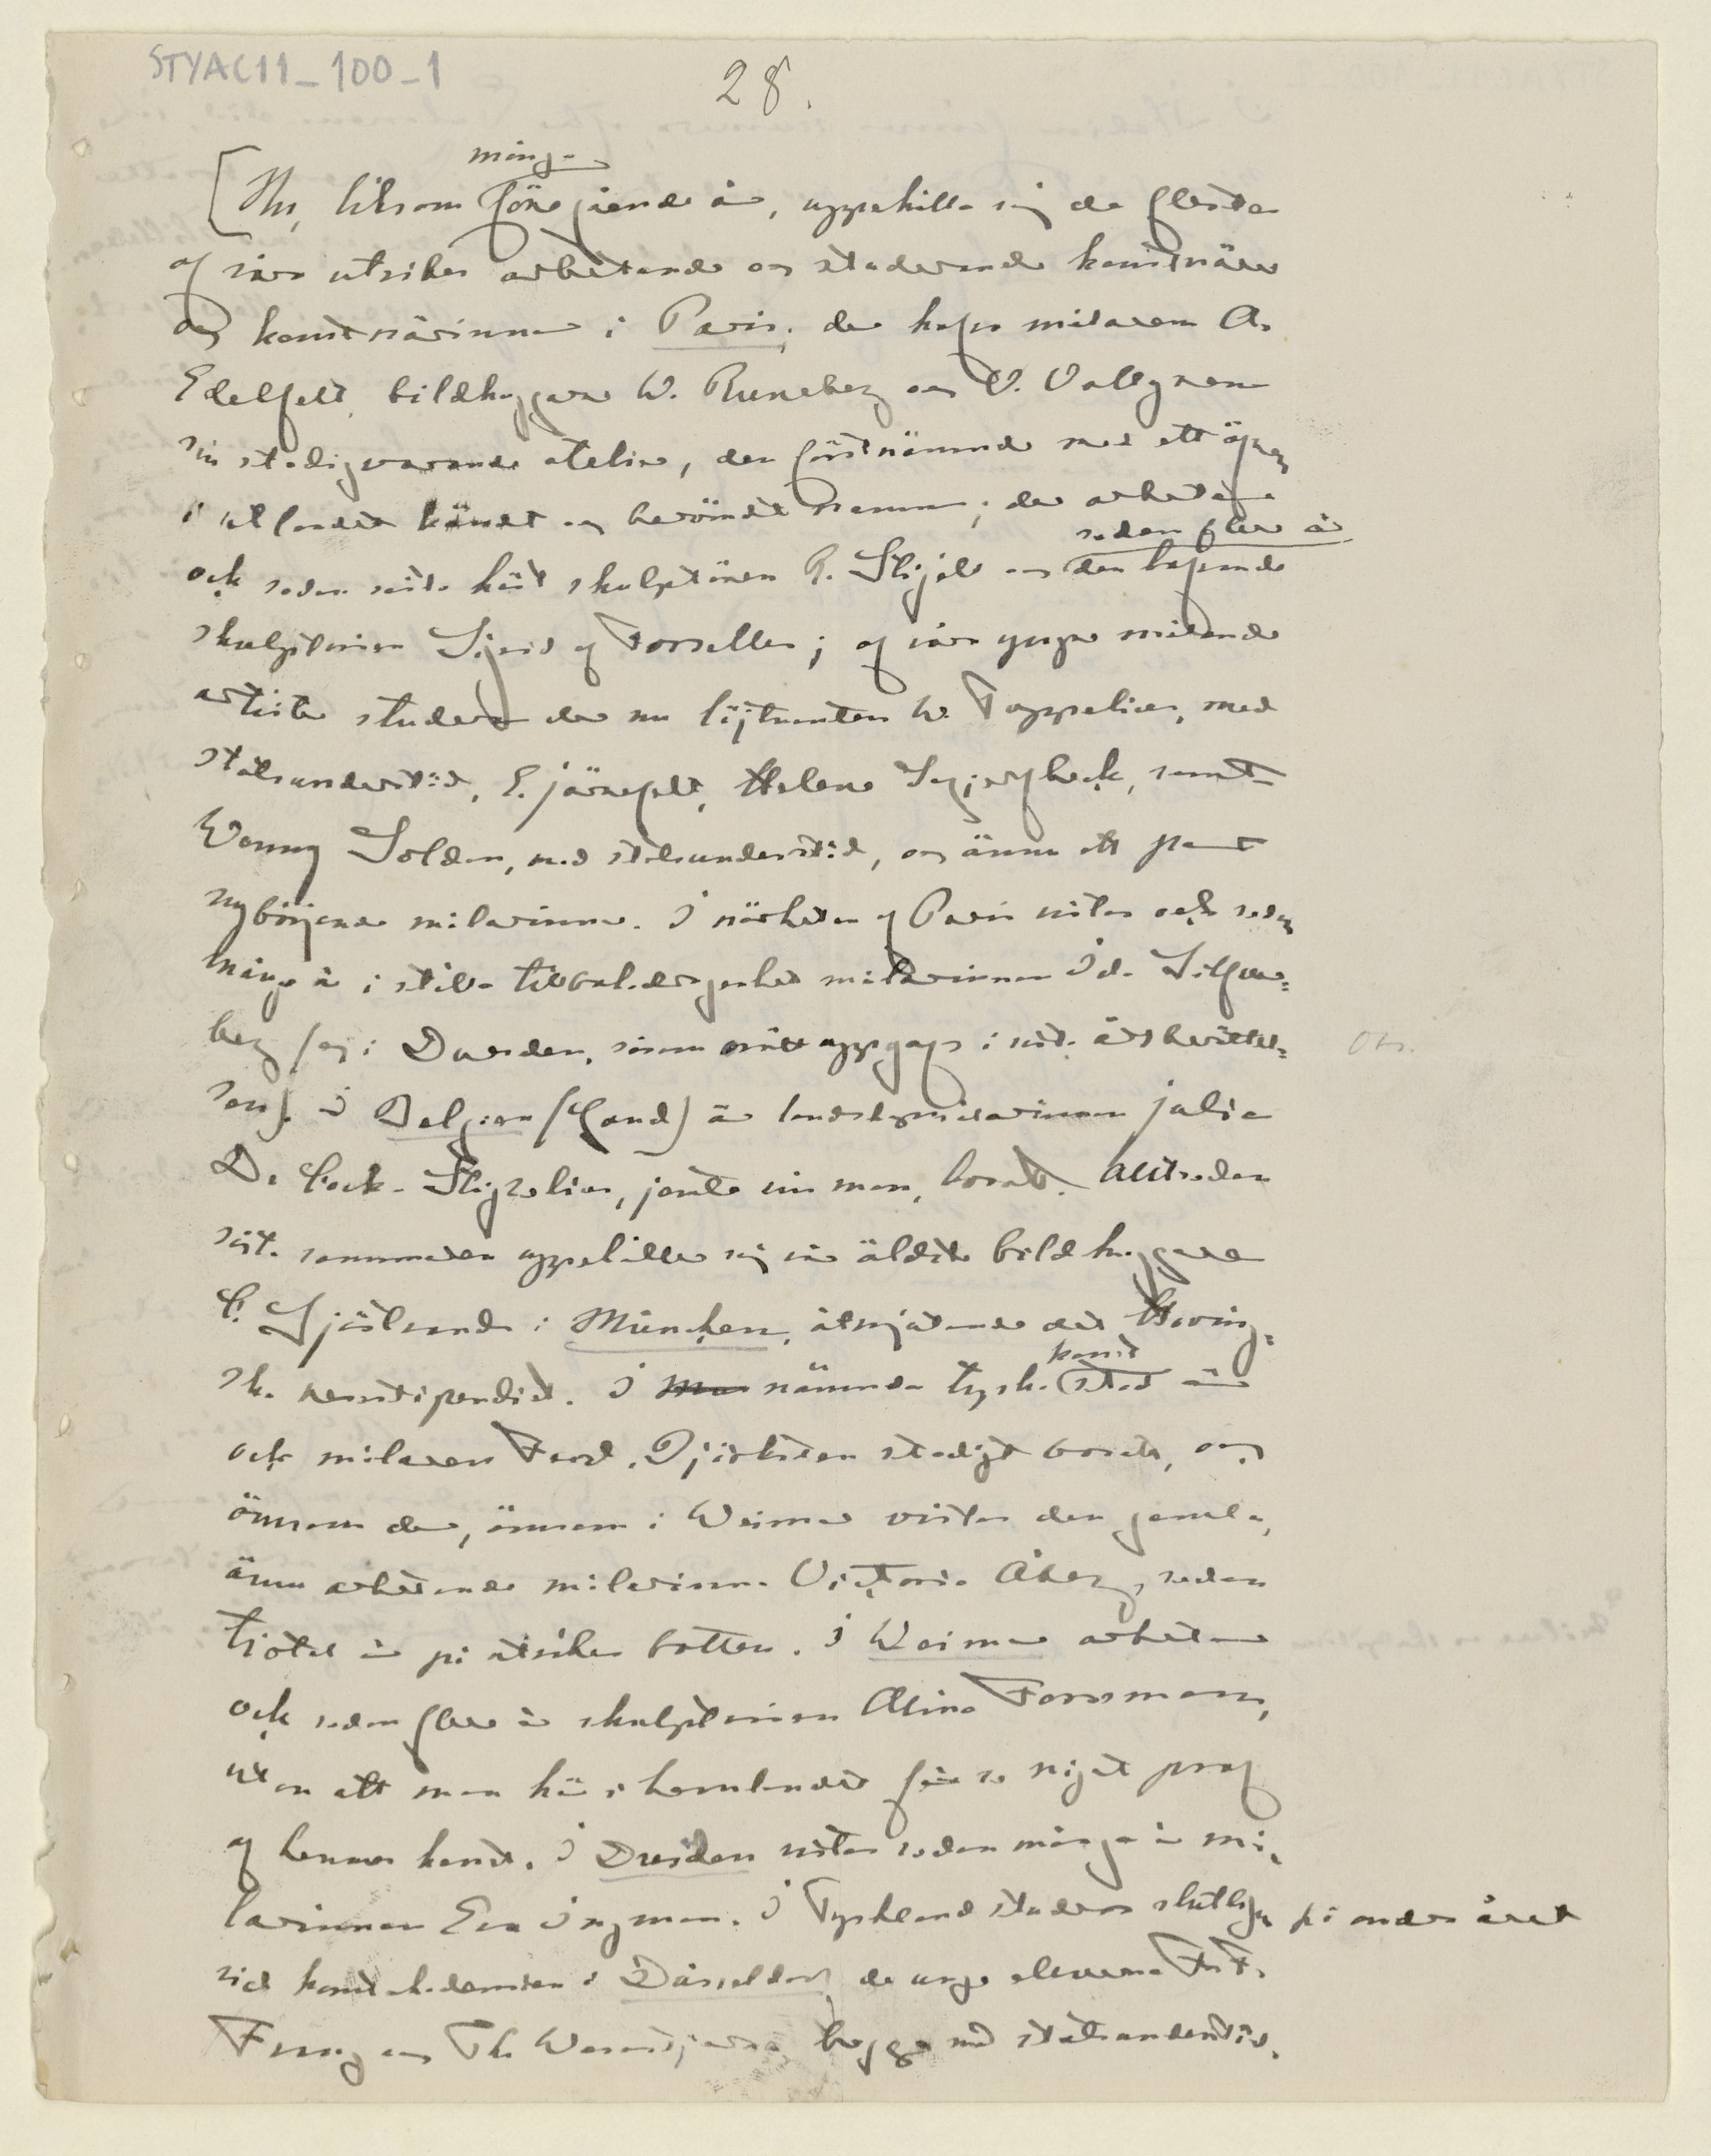 STYAC11_100_1
28.
många
[Nu, liksom föregående år, uppehålla sig de flesta
af våra utrikes arbetande och studerande konstnärer
och konstnärinnor i Paris; der hafva målaren A.
Edelfelt, bildhuggarne W. Runeberg och V. Vallgren
sin stadigvarande atelier, den förstnämnde med ett äfven
i utlandet kändt och berömdt namn; der arbeta
sedan flere år
ock sedan sista höst skulptören R. Stigell och den bofunde
skulptrisen Sigrid af Forselles; af våra yngre målande
artister studera der nu löjtnanten W. Toppelius, med
statsunderstöd, E. Järnefelt, Helene Schjerfbeck, samt
Wenny Soldan, med statsunderstöd, och ännu ett par
nybörjande målarinnor. I närheten af Paris vistas ock sedan
många år i stilla tillbakadragenhet målarinnan Ida Silfver=
berg (ej i Dresden, såsom orätt uppgafs i sista årsberättel=
Obs.
sen). I Belgien (Gand) är landskapsmålarinnan Julia
De Cock-Stigzelius, jemte sin man, bosatt. Alltsedan
sista sommaren uppehåller sig vår äldste bildhuggare
C. Sjöstrand i München, åtnjutande det Hoving=
konst
ska resestipendiet. I nämnda tyska stad är
ock målaren Ferd. Björksten stadigt bosatt, och
ömsom der, ömsom i Weimar vistas den gamla,
ännu arbetande målarinnan Victoria Åberg, sedan
tjotal år på utrikes botten. I Weimar arbetar
ock sedan flere år skulptrisen Alina Forsman,
utan att man här i hemlandet får se något prof
af hennes konst. I Dresden vistas sedan många år må=
larinnan Eva Ingman. I Tyskland studera slutligen på andra året
vid konstakademien i Düsseldorf de unga eleverna
och Th. Wænerberg, begge med statsunderstöd.